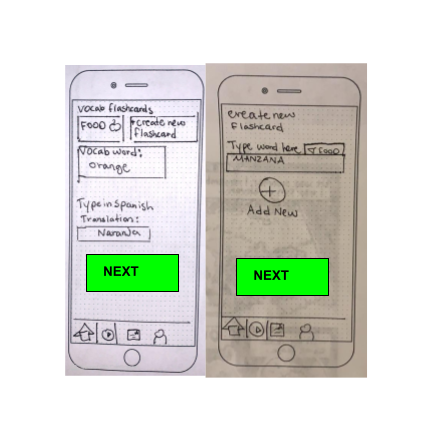 Vocab flashcards
FOOD
+create new
flashcard
Vocab word:
orange
Type in Spanish
Translation:
NaranJa
NEXT
create new
Flashcard
Type word here
▽ FOOD
MANZANA
+
Add New
NEXT